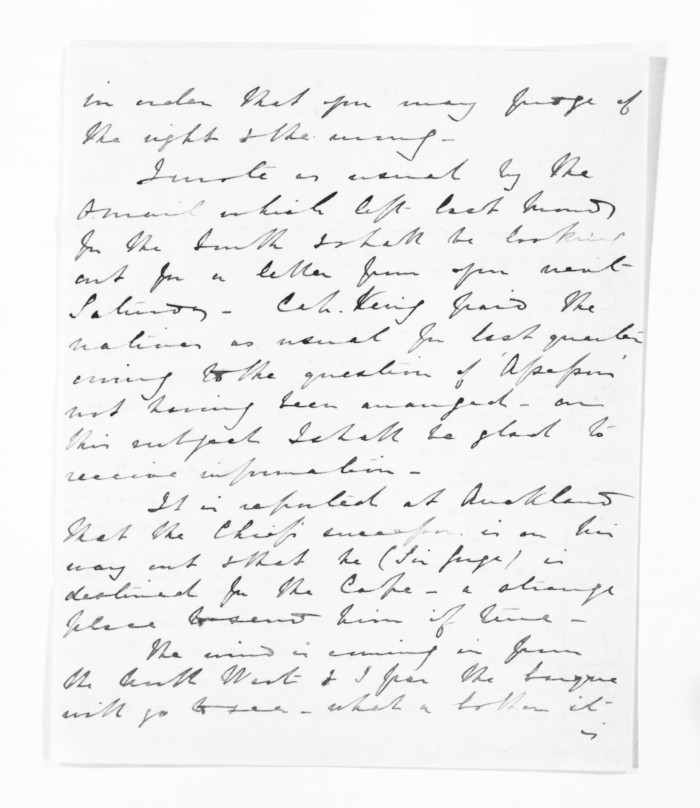 in order that you may judge of
the right & the wrong -
I wrote as usual by the
mail which left last Monday
for the South & shall be looking
out for a letter from you next
Saturday - Capt. King paid the
natives as usual for last quarter
owing to the question of 'Assessors'
not having been arranged - on
this subject I shall be glad to
receive information -
It is reported at Auckland
that the Chief's successor is on his
way out & that he (Sir Geoge) is
destined for the Cape - a strange
place to send him if true -
The wind is coming in from
the North West & I fear the barque
will go to sea - what a bother it
is